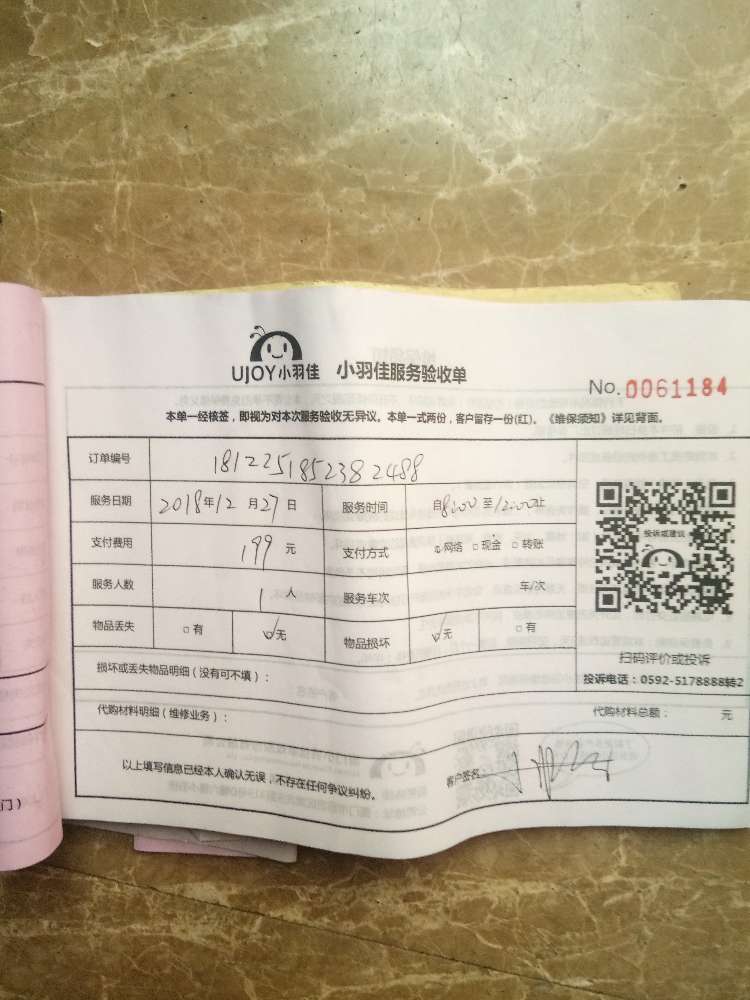 UJOY小羽佳 小羽佳服务验收单
No.0061184
本单一经核签，即视为对本次服务验收无异议。本单一式两份，客户留存一份(红)。《维保须知》详见背面。
订单编号 181225185238 2488
服务日期 2018年12月27日 服务时间 自8:00至12:00止
支付费用 199元 支付方式 ☑网络 □现金 □转账
服务人数 1人 服务车次 车/次
物品丢失 □有 ☑无 物品损坏 ☑无 □有
投诉或建议
扫码评价或投诉
投诉电话：0592-5178888转2
损坏或丢失物品明细（没有可不填）：
代购材料明细（维修业务）： 代购材料总额： 元
以上填写信息已经本人确认无误，不存在任何争议纠纷。 客户签名：
门）